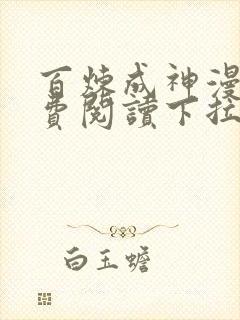 百炼成神漫
费阅读下拉
白玉蟾